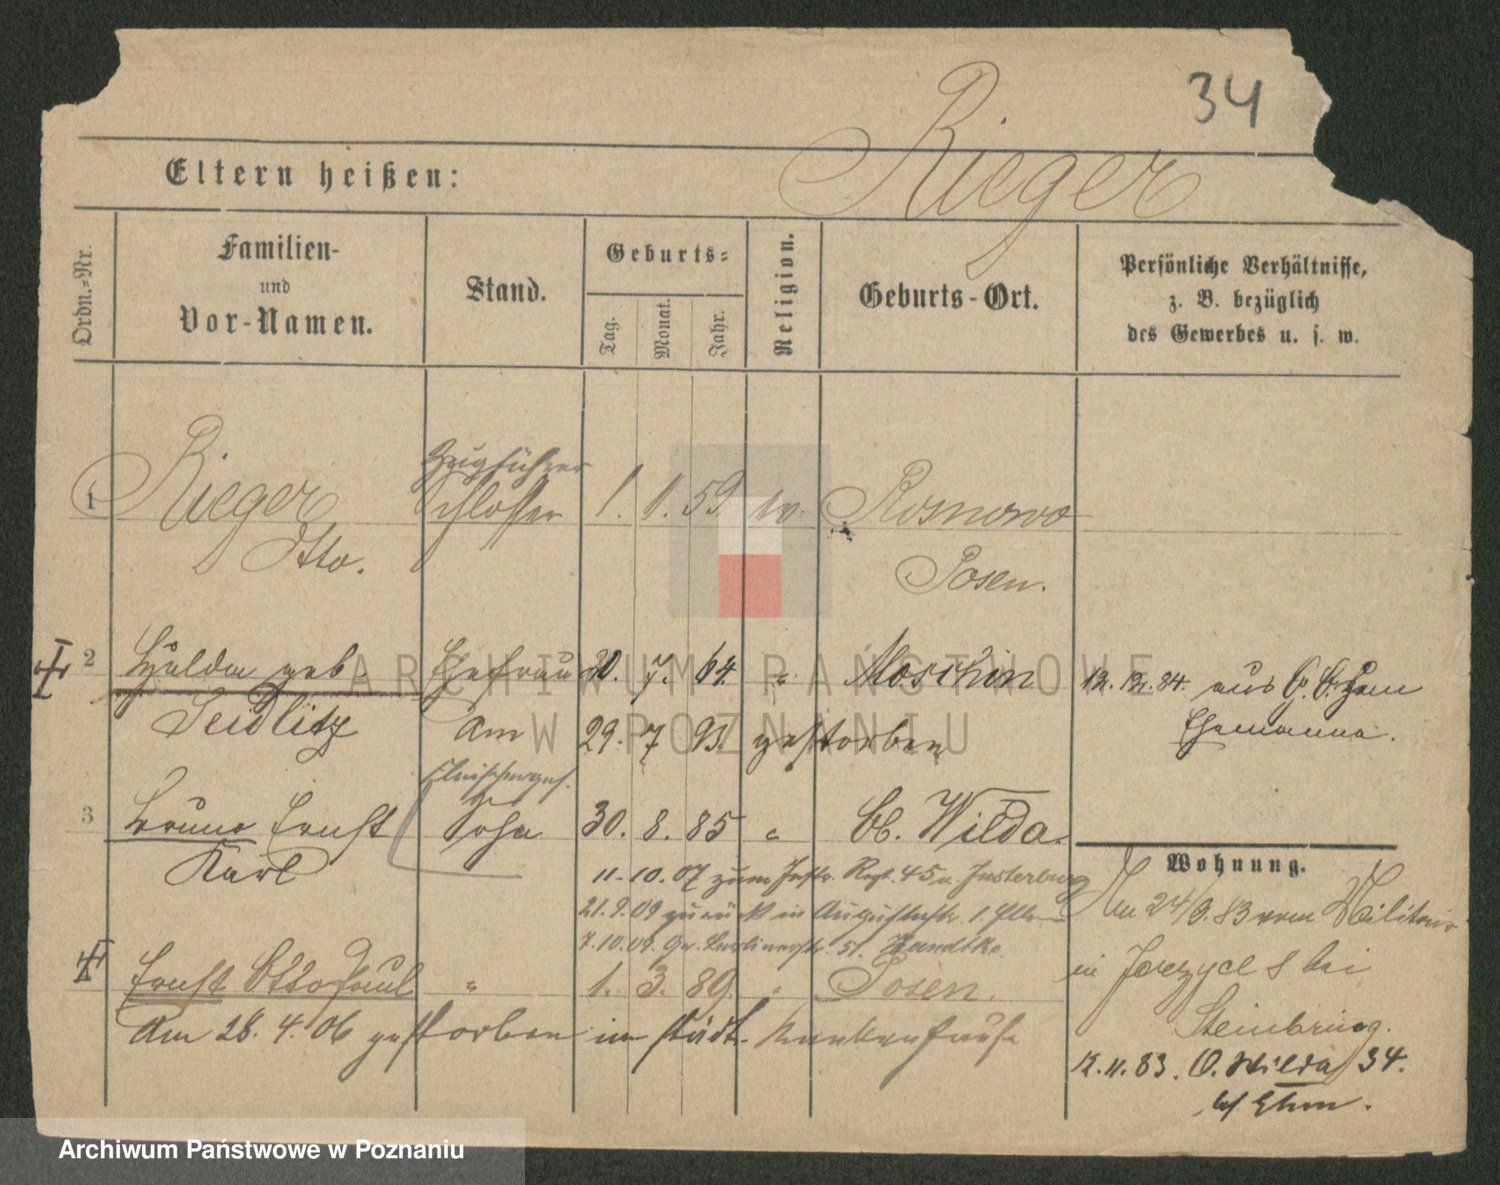 34
Rieger
Eltern heißen:
Ordn.-Nr.
Familien-
und
Vor-Namen.
Stand.
Geburts-
Tag.
Monat.
Jahr.
Religion.
Geburts-Ort.
Persönliche Verhältnisse,
z. B. bezüglich
des Gewerbes u. s. w.
Zugführer
1 Rieger Schlosser 1. 1. 59 ev. Rosnowo
Otto. Posen.
2 Hulda geb Ehefrau 20. 7. 64 " Moschin 12. 12. 84. aus
Seidlitz Am 29. 7 93 gestorben Ehemanne.
Fleischerges.
3 Bruno Ernst Sohn 30. 8. 85 " Wilda.
Karl
11.10.07 zum Inftr. Regt. 45 n. Insterburg
21.9.09 zurück in Augustastr. 1.
7.10.09. Berlinerstr. 51. Handtke
Ernst Otto Paul " 1. 3. 89 " Posen.
Am 28. 4. 06 gestorben im städt. Krankenhause
Wohnung.
Am 24/9.83 vom Militair
in Jerzyce 8 bei
Steinbring.
12.11.83. O. Wilda 34.
b/ Ehm.
ARCHIWUM PAŃSTWOWE
W POZNANIU
Archiwum Państwowe w Poznaniu